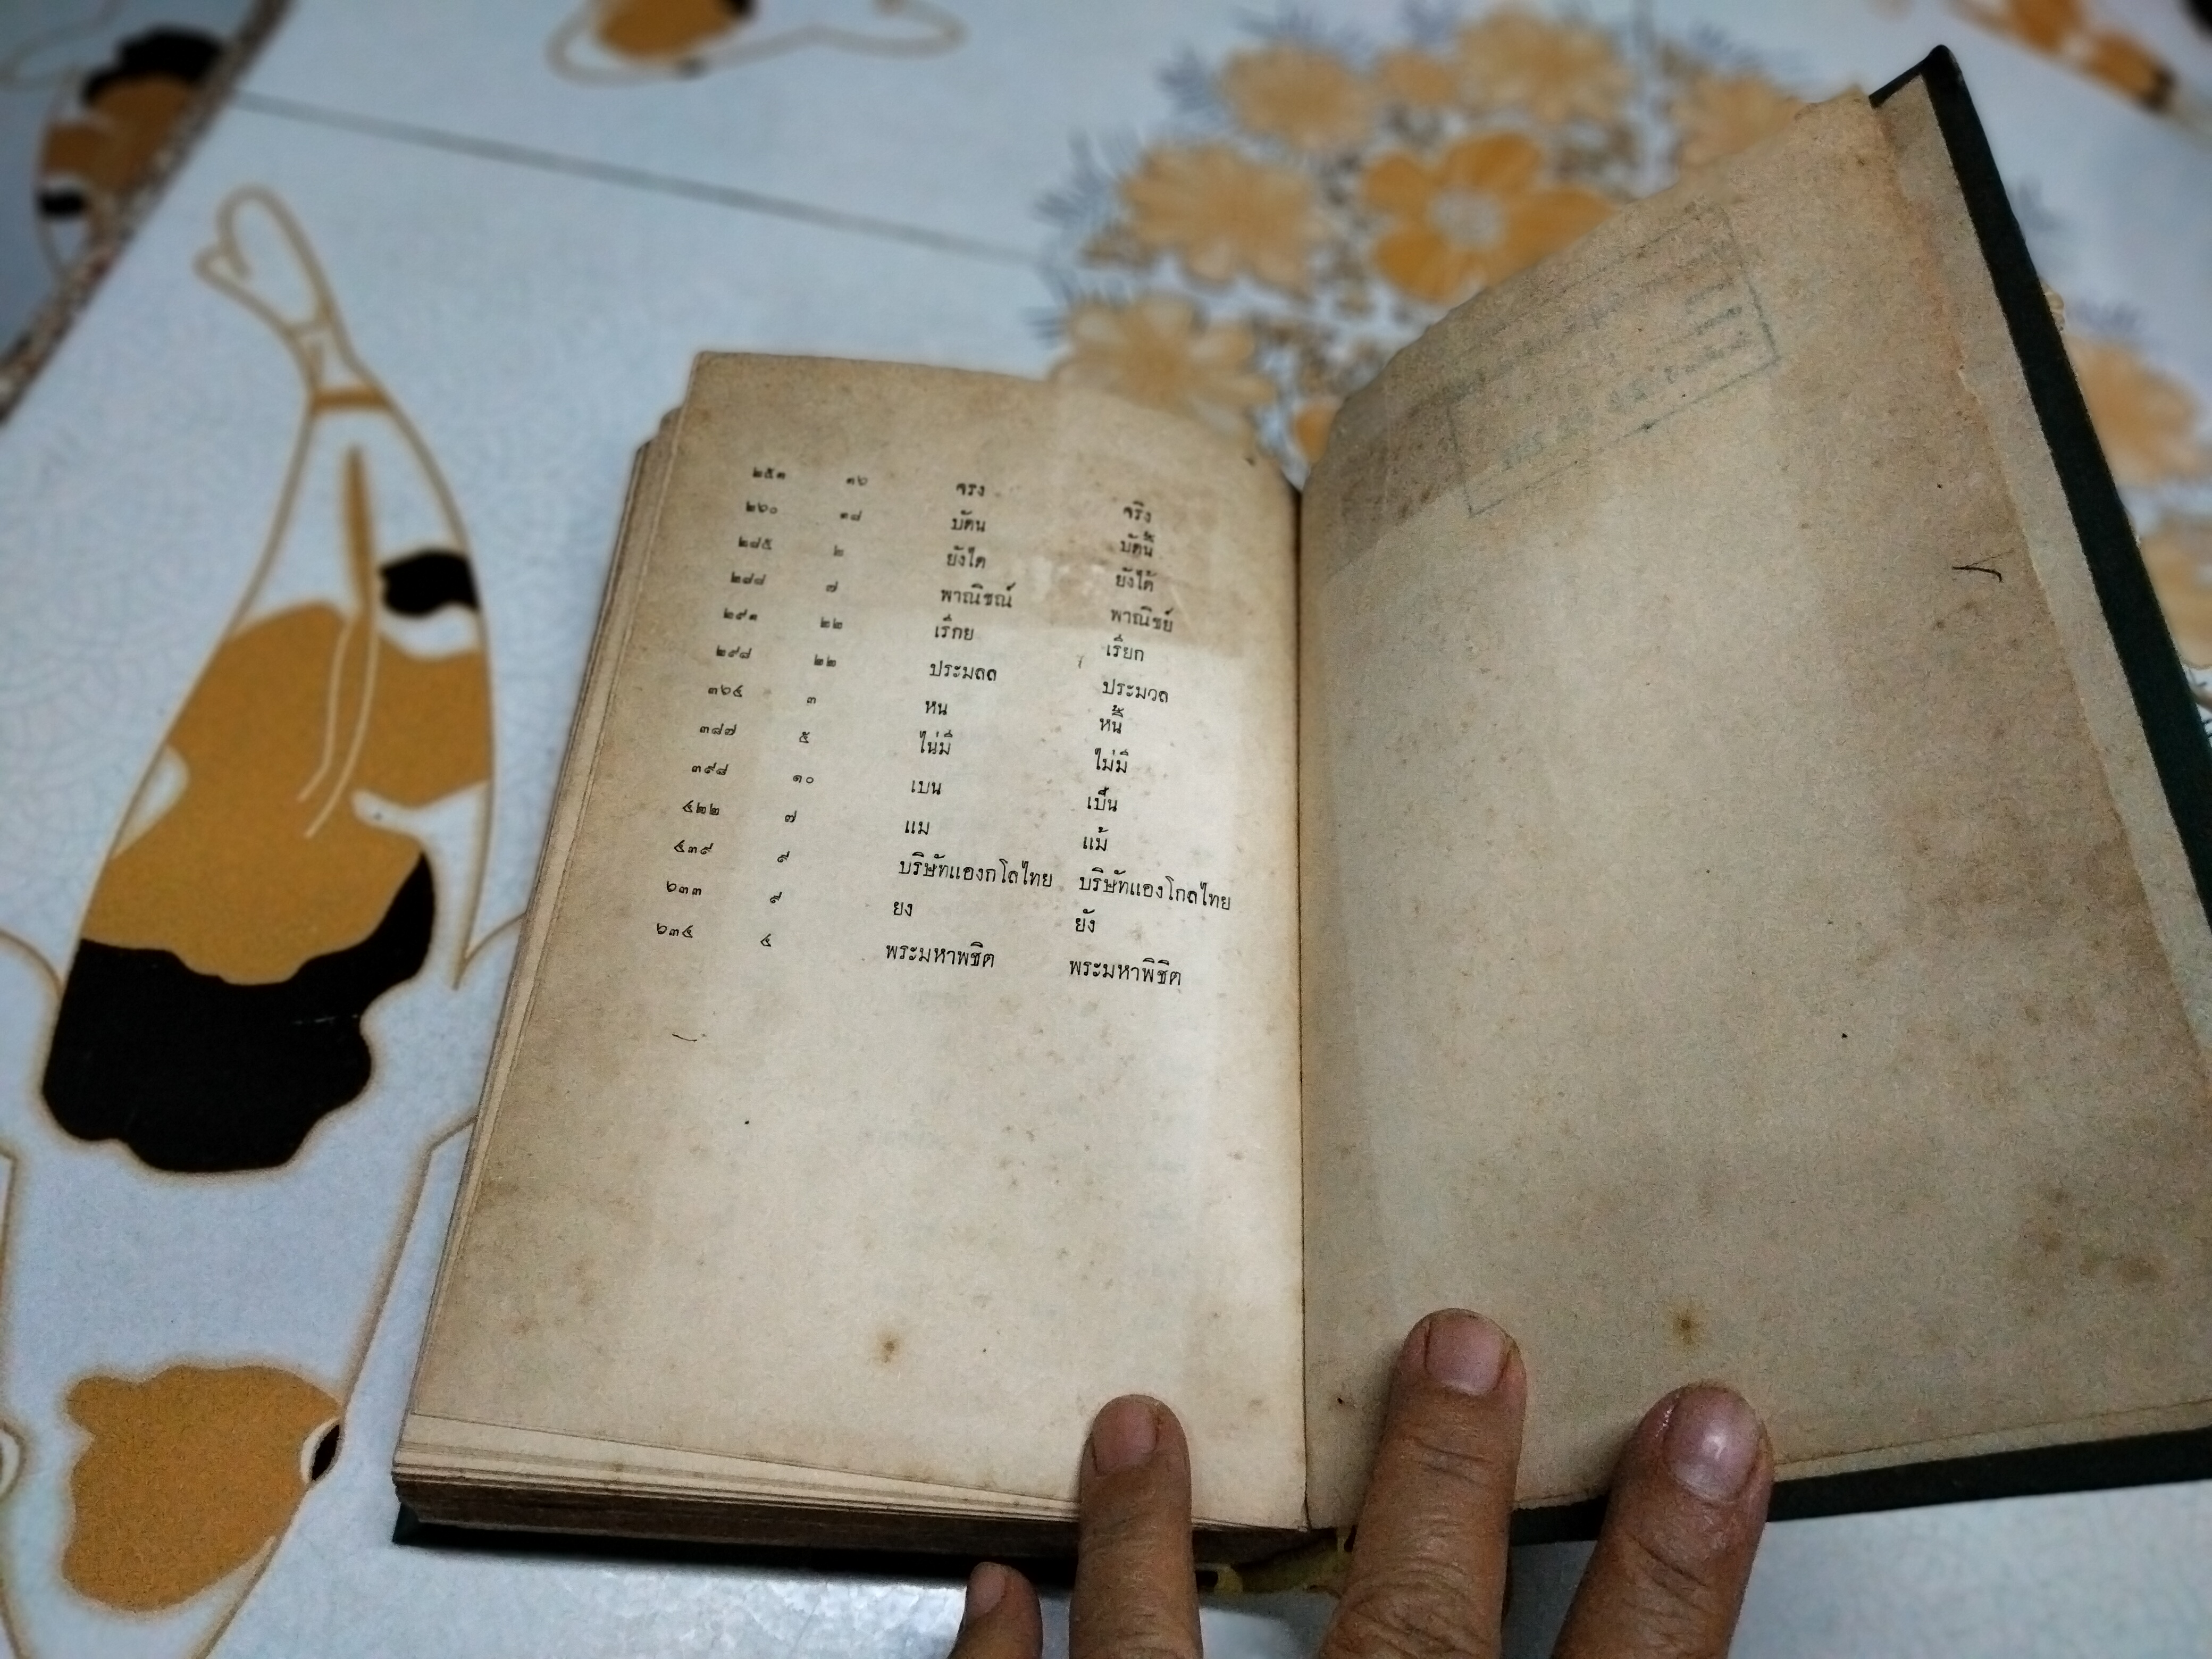 ๒๕๓ ๑๖ จรง จริง
๒๖๐ ๑๘ บัดน บัดนี้
๒๘๕ ๒ ยังได ยังได้
๒๘๘ ๗ พาณิชณ์ พาณิชย์
๒๙๑ ๒๒ เรีกย เรียก
๒๙๘ ๒๒ ประมลล ประมวล
๓๖๔ ๓ หน หนี้
๓๘๗ ๕ ไน่มี ไม่มี
๓๙๘ ๑๐ เบน เป็น
๔๒๒ ๗ แม แม้
๔๓๙ ๙ บริษัทแองกโลไทย บริษัทแองโกลไทย
๖๓๓ ๙ ยง ยัง
๖๓๔ ๔ พระมหาพชิต พระมหาพิชิต